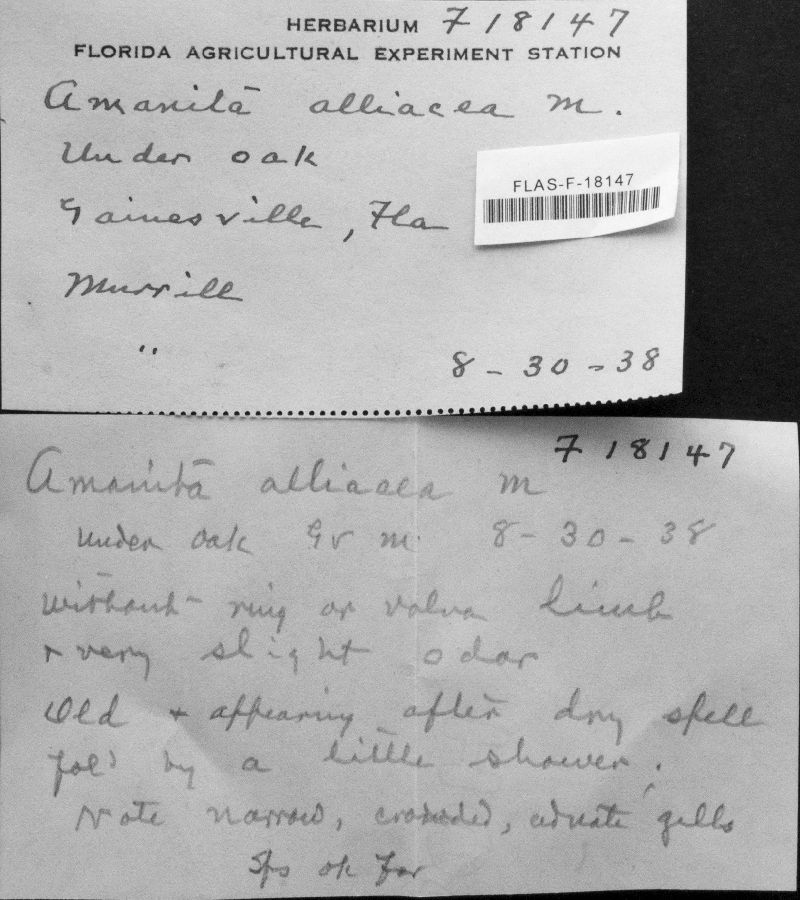 HERBARIUM F 18147
FLORIDA AGRICULTURAL EXPERIMENT STATION
Amanita alliacea M.
Under oak
FLAS-F-18147
Gainesville, Fla
Murrill
"
8-30-38
F 18147
Amanita alliacea M
Under oak Gv M. 8-30-38
without ring or volva limb
& very slight odor
Old & appearing after dry spell
fol'd by a little shower.
Note narrow, crowded, adnate gills
Sps ok for